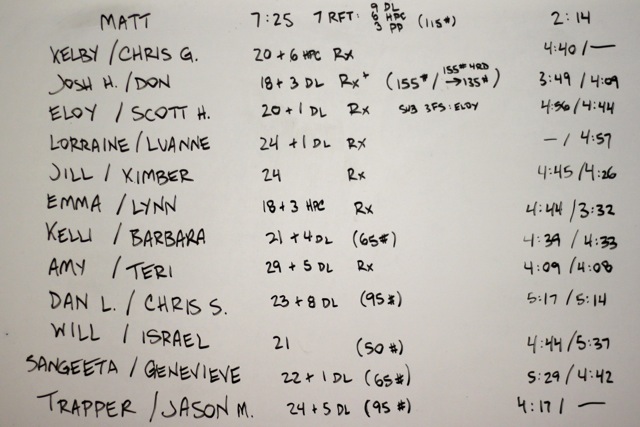 MATT 7:25 7 RFT: 9 DL 6 HPC 3 PP (115#) 2:14
KELBY / CHRIS G. 20 + 6 HPC Rx 4:40 / —
JOSH H. / DON 18 + 3 DL Rx+ (155# / 155# 4RD → 135#) 3:49 / 4:09
ELOY / SCOTT H. 20 + 1 DL Rx SUB 3FS: ELOY 4:56 / 4:44
LORRAINE / LUANNE 24 + 1 DL Rx — / 4:57
JILL / KIMBER 24 Rx 4:45 / 4:26
EMMA / LYNN 18 + 3 HPC Rx 4:44 / 3:32
KELLI / BARBARA 21 + 4 DL (65#) 4:39 / 4:33
AMY / TERI 29 + 5 DL Rx 4:09 / 4:08
DAN L. / CHRIS S. 23 + 8 DL (95#) 5:17 / 5:14
WILL / ISRAEL 21 (50#) 4:44 / 5:37
SANGEETA / GENEVIEVE 22 + 1 DL (65#) 5:29 / 4:42
TRAPPER / JASON M. 24 + 5 DL (95#) 4:17 / —